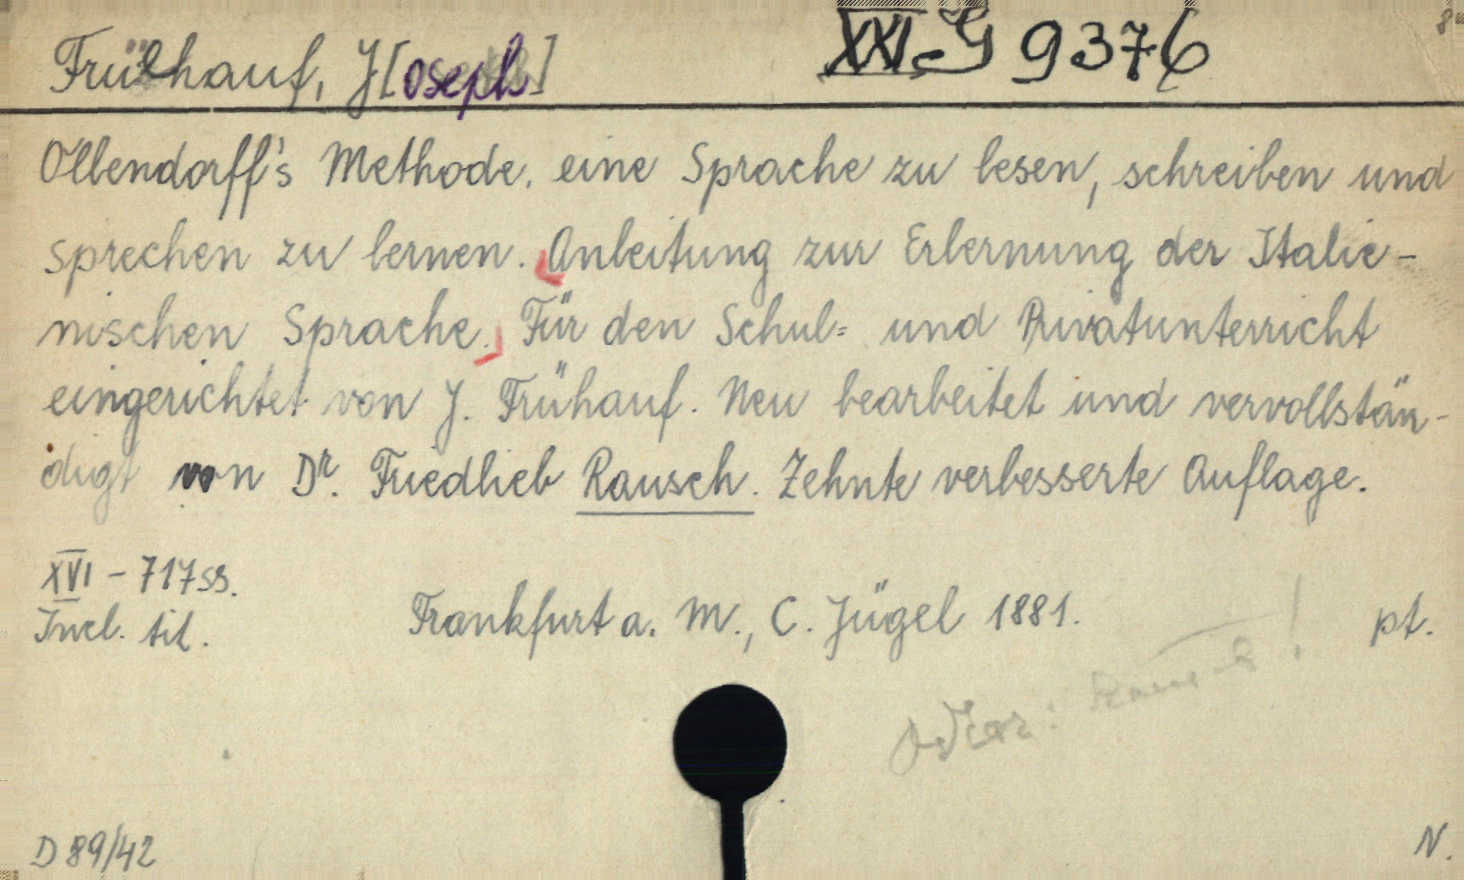 Frühauf, J[oseph]
XXI-G 9376
8°
Ollendorff's Methode, eine Sprache zu lesen, schreiben und
sprechen zu lernen. Anleitung zur Erlernung der Italie-
nischen Sprache. Für den Schul= und Privatunterricht
eingerichtet von J. Frühauf. Neu bearbeitet und vervollstän-
digt von Dr. Friedlieb Rausch. Zehnte verbesserte Auflage.
XVI - 717 ss.
Incl. tit.
Frankfurt a. M., C. Jügel 1881.
pt.
D 89/42
N.